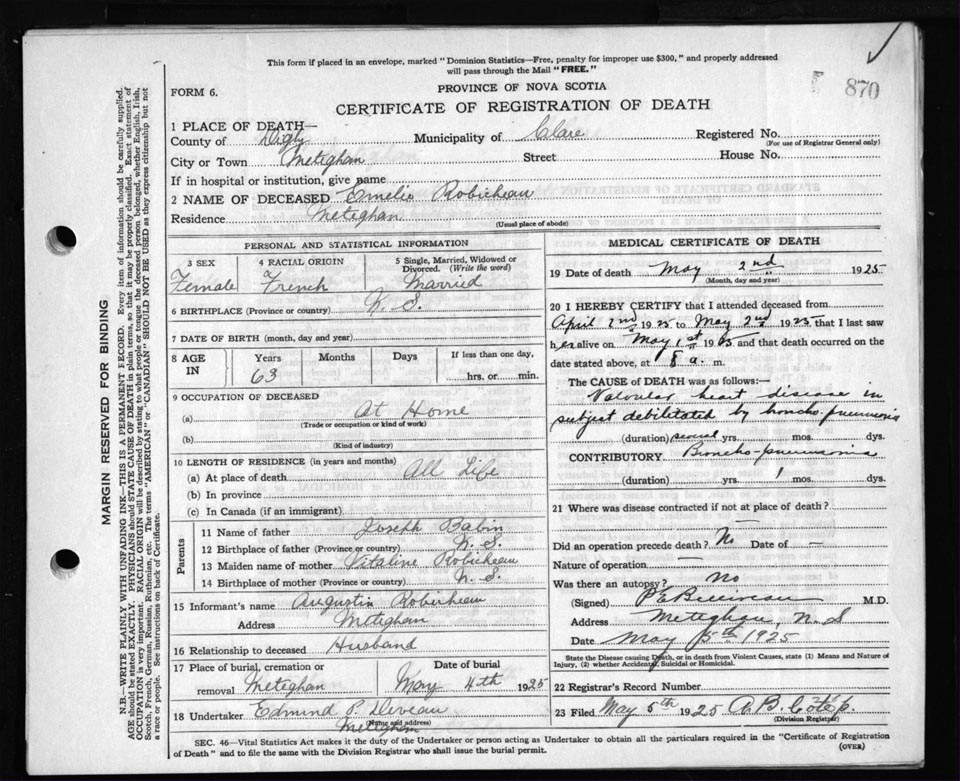 This form if placed in an envelope, marked "Dominion Statistics—Free, penalty for improper use $300," and properly addressed
will pass through the Mail "FREE."
870
FORM 6.
PROVINCE OF NOVA SCOTIA
CERTIFICATE OF REGISTRATION OF DEATH
1 PLACE OF DEATH—
County of Digby Municipality of Clare Registered No.
(For use of Registrar General only)
City or Town Meteghan Street House No.
If in hospital or institution, give name
2 NAME OF DECEASED Emelie Robicheau
Residence Meteghan
(Usual place of abode)
PERSONAL AND STATISTICAL INFORMATION
3 SEX 4 RACIAL ORIGIN 5 Single, Married, Widowed or
Divorced. (Write the word)
Female French Married
6 BIRTHPLACE (Province or country) N. S.
7 DATE OF BIRTH (month, day and year)
8 AGE IN Years Months Days If less than one day,
63 hrs. or min.
9 OCCUPATION OF DECEASED
(a) At Home
(Trade or occupation or kind of work)
(b)
(Kind of industry)
10 LENGTH OF RESIDENCE (in years and months)
(a) At place of death All Life
(b) In province
(c) In Canada (if an immigrant)
Parents
11 Name of father Joseph Babin
12 Birthplace of father (Province or country) N. S.
13 Maiden name of mother Vitaline Robicheau
14 Birthplace of mother (Province or country) N. S.
15 Informant's name Augustin Robicheau
Address Meteghan
16 Relationship to deceased Husband
17 Place of burial, cremation or Date of burial
removal Meteghan May 4th 1925
18 Undertaker Edmund P. Deveau
(Name and address)
Meteghan
MEDICAL CERTIFICATE OF DEATH
19 Date of death May 2nd 1925
(Month, day and year)
20 I HEREBY CERTIFY that I attended deceased from
April 2nd 1925 to May 2nd 1925 that I last saw
her alive on May 1st 1925 and that death occurred on the
date stated above, at 8 a. m.
The CAUSE OF DEATH was as follows:—
Valvular heart disease in
subject debilitated by broncho-pneumonia
(duration) several yrs. mos. dys.
CONTRIBUTORY Broncho-pneumonia
(duration) yrs. 1 mos. dys.
21 Where was disease contracted if not at place of death?
—
Did an operation precede death? No Date of —
Nature of operation
Was there an autopsy? no
(Signed) M.D.
Address Meteghan, N. S
Date May 5th 1925
State the Disease causing Death, or in death from Violent Causes, state (1) Means and Nature of
Injury, (2) whether Accidental, Suicidal or Homicidal.
22 Registrar's Record Number
23 Filed May 5th 1925 A. B.
(Division Registrar)
SEC. 46—Vital Statistics Act makes it the duty of the Undertaker or person acting as Undertaker to obtain all the particulars required in the "Certificate of Registration
of Death" and to file the same with the Division Registrar who shall issue the burial permit.
(OVER)
MARGIN RESERVED FOR BINDING
N.B.—WRITE PLAINLY WITH UNFADING INK—THIS IS A PERMANENT RECORD. Every item of information should be carefully supplied.
AGE should be stated EXACTLY. PHYSICIANS should STATE CAUSE OF DEATH in plain terms, so that it may be properly classified. Exact statement of
OCCUPATION is very important. RACIAL ORIGIN will be described by stating to what people or tongue the deceased person belonged, whether English, Irish,
Scotch, French, German, Russian, Ruthenian, etc. The terms "AMERICAN" or "CANADIAN" SHOULD NOT BE USED as they express citizenship but not
a race or people. See instructions on back of Certificate.